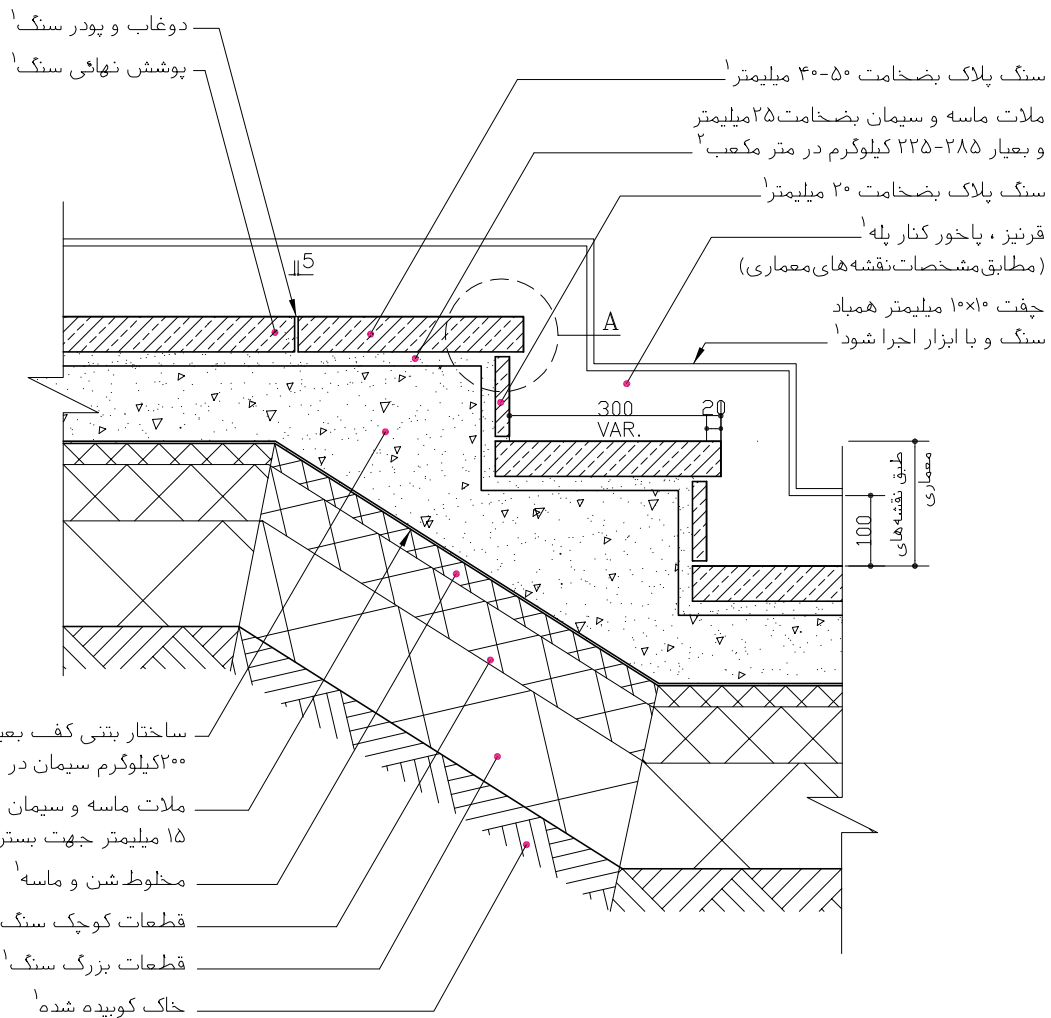 دوغاب و پودر سنگ۱
پوشش نهائی سنگ۱
سنگ پلاک بضخامت ۵۰-۴۰ میلیمتر۱
ملات ماسه و سیمان بضخامت۲۵میلیمتر
و بعیار ۲۸۵-۲۲۵ کیلوگرم در متر مکعب۲
سنگ پلاک بضخامت ۲۰ میلیمتر۱
قرنیز ، پاخور کنار پله۱
(مطابق مشخصات نقشه های معماری)
چفت ۱۰×۱۰ میلیمتر همباد
سنگ و با ابزار اجرا شود۱
5
A
300
VAR.
20
100
طبق نقشه‌های
معماری
ساختار بتنی کف
۲۰۰کیلوگرم سیمان در
ملات ماسه و سیمان
۱۵ میلیمتر جهت بستر
مخلوط شن و ماسه۱
قطعات کوچک سنگ
قطعات بزرگ سنگ۱
خاک کوبیده شده۱